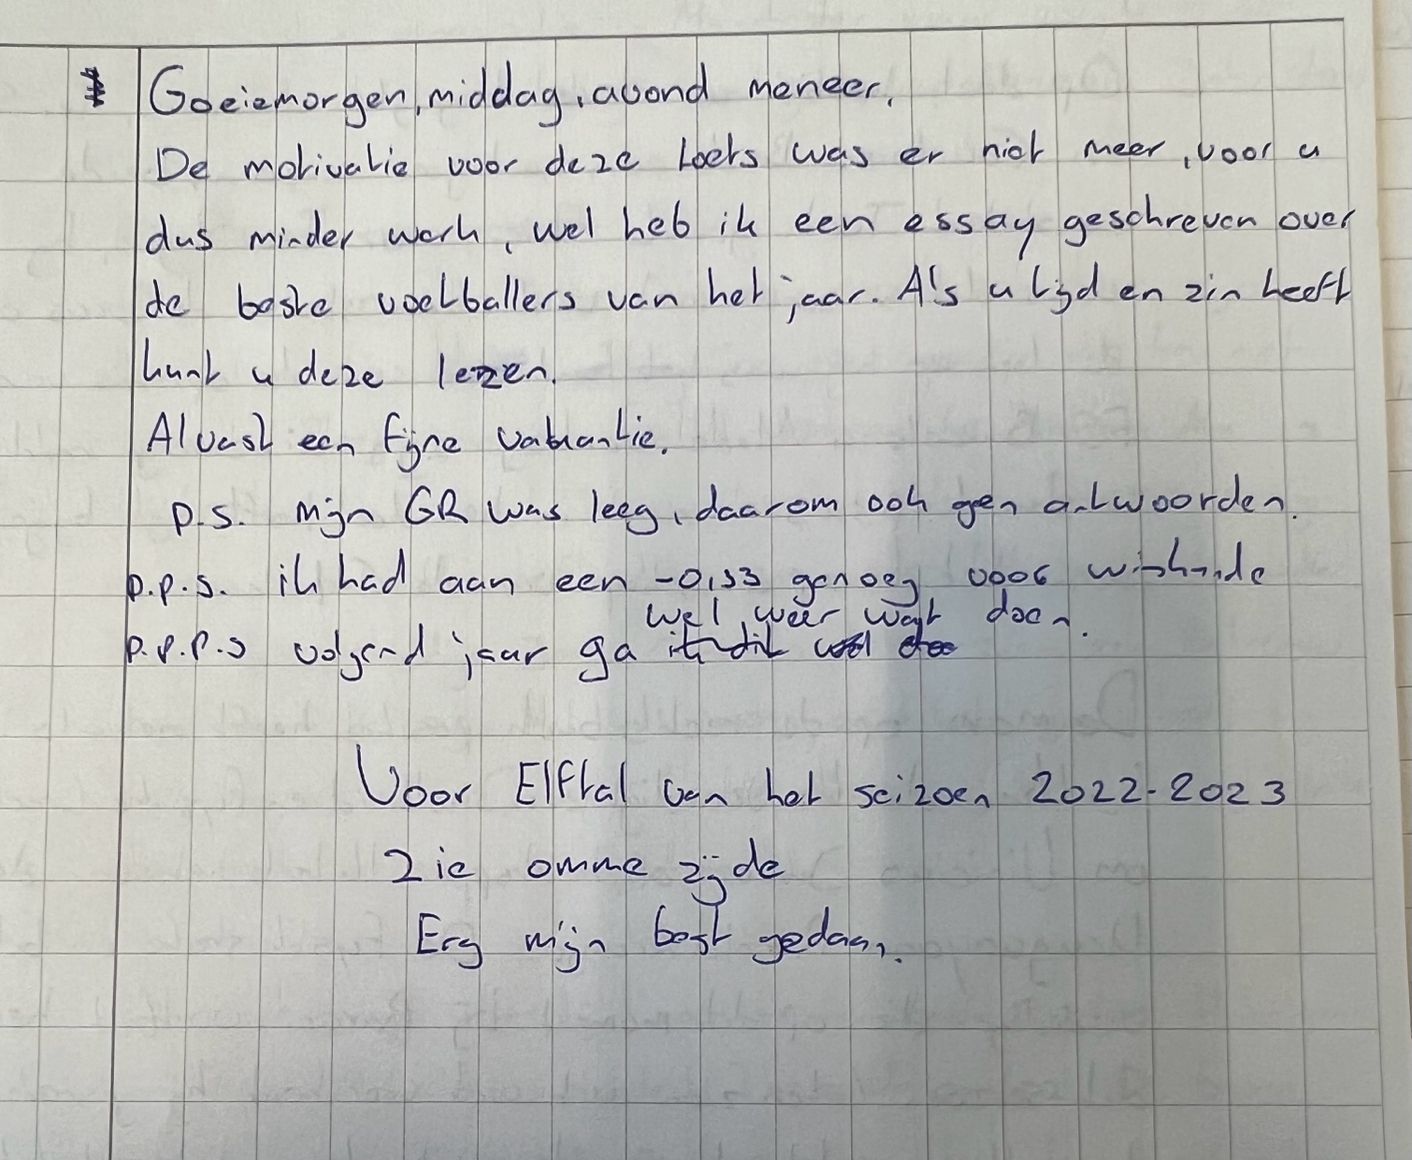 Goeiemorgen, middag, avond meneer.
De motivatie voor deze toets was er niet meer, voor u
dus minder werk, wel heb ik een essay geschreven over
de beste voetballers van het jaar. Als u tijd en zin heeft
kunt u deze lezen.
Alvast een fijne vakantie.
p.s. mijn GR was leeg, daarom ook gen antwoorden.
p.p.s. ik had aan een -0,53 genoeg voor wiskunde
p.p.p.s volgend jaar ga ik dit wel weer wat doen.
Voor Elftal van het seizoen 2022-2023
Zie omme zijde
Erg mijn best gedaan.